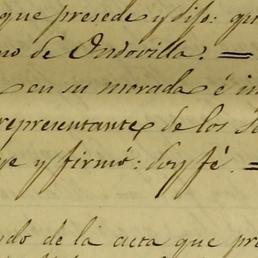 que presede y dijo: qu
no de Ondovilla. =
en su morada é in
representante de los S
ye y firmó: doy fé. =
ndo de la acta que pr